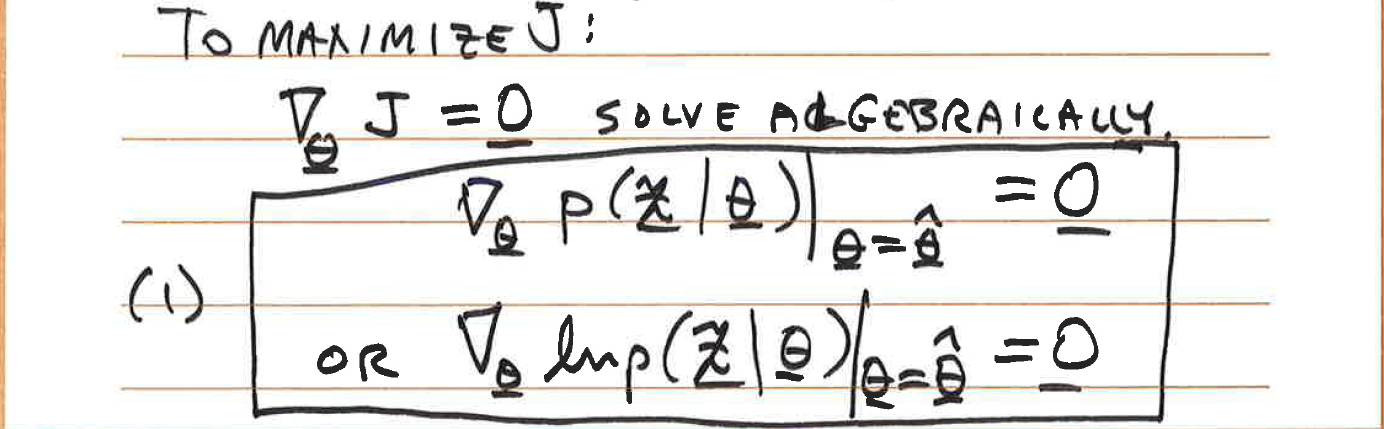 TO MAXIMIZE J:
∇_θ J = 0 SOLVE ALGEBRAICALLY.
∇_θ p(z|θ)|_θ=θ̂ = 0
(1)
OR ∇_θ ln p(z|θ)|_θ=θ̂ = 0